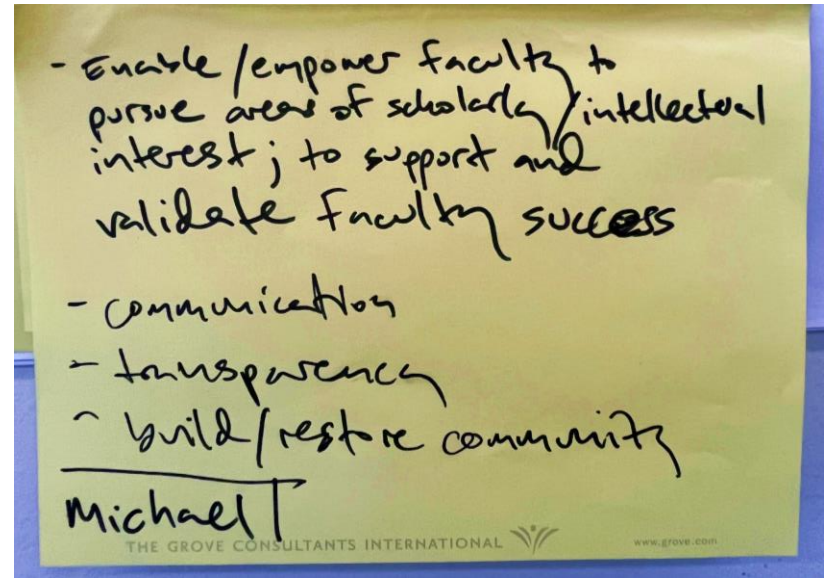 - Enable/empower faculty to
pursue areas of scholarly/intellectual
interest; to support and
validate faculty success
- communication
- transparency
- build/restore community
Michael T
THE GROVE CONSULTANTS INTERNATIONAL
www.grove.com